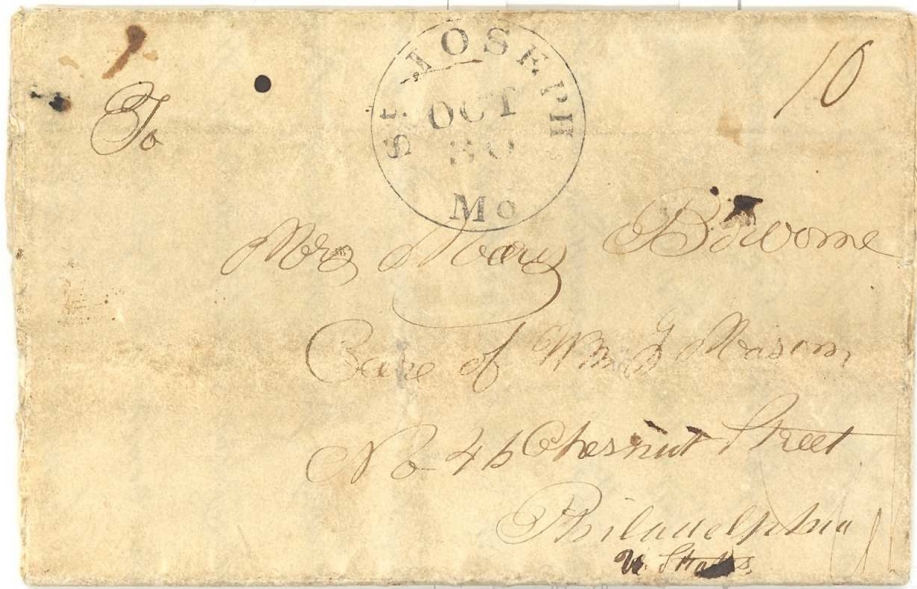 ST. JOSEPH
OCT
30
Mo
10
To
Mrs Mary
Care of Wm G Mason
No 46 Chesnut Street
Philadelphia
U. States